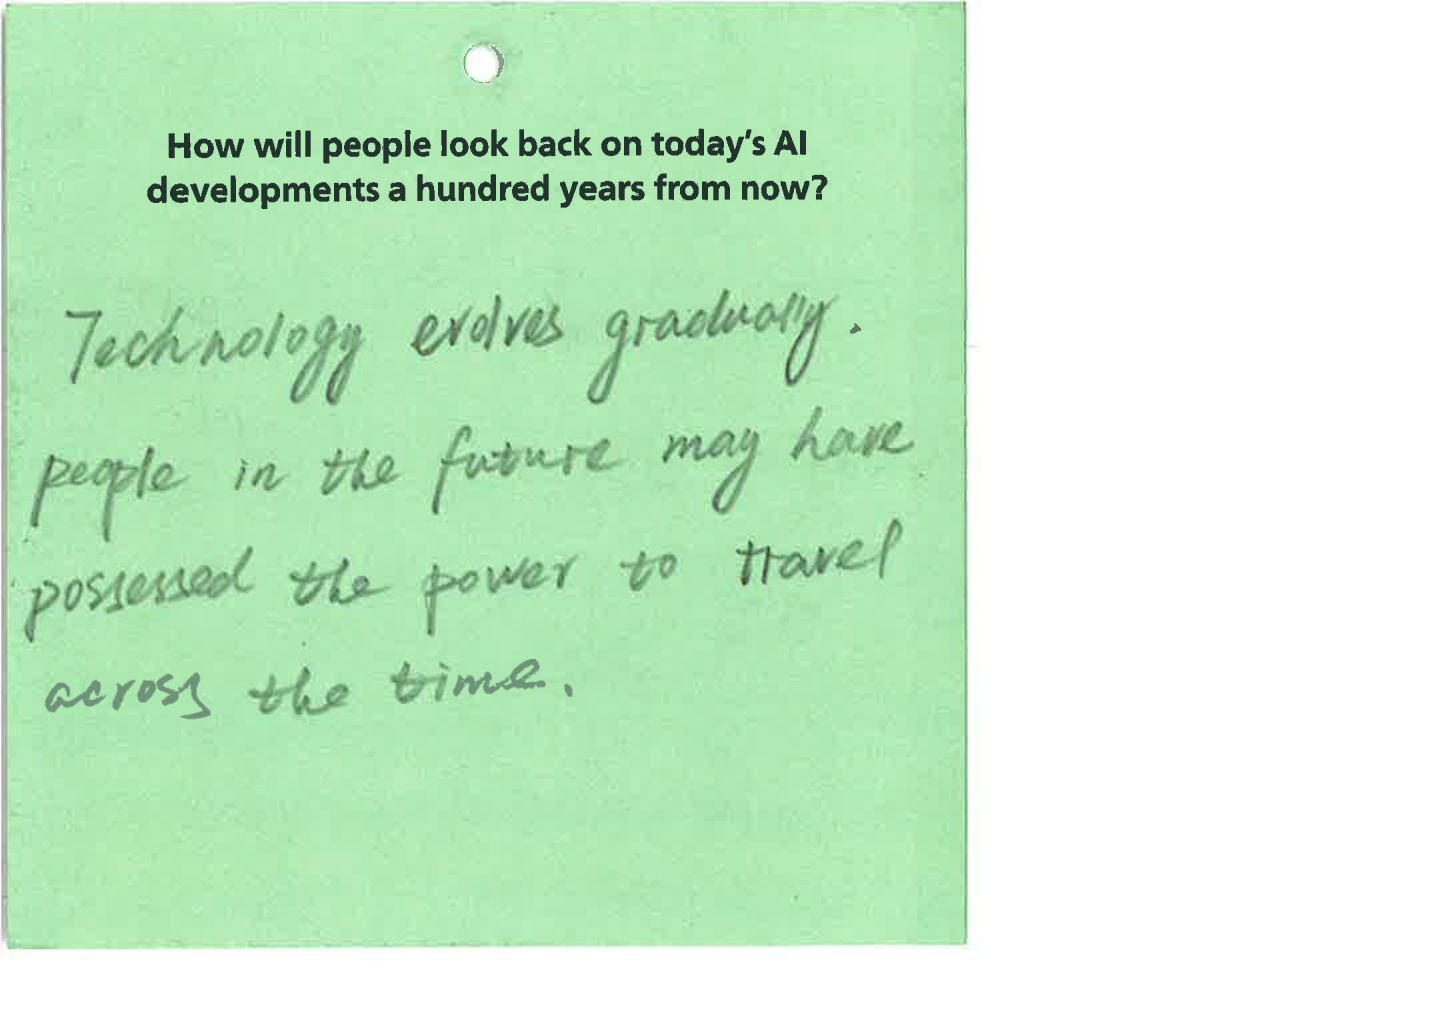 How will people look back on today's AI
developments a hundred years from now?
Technology evolves gradually.
people in the future may have
possessed the power to travel
across the time.